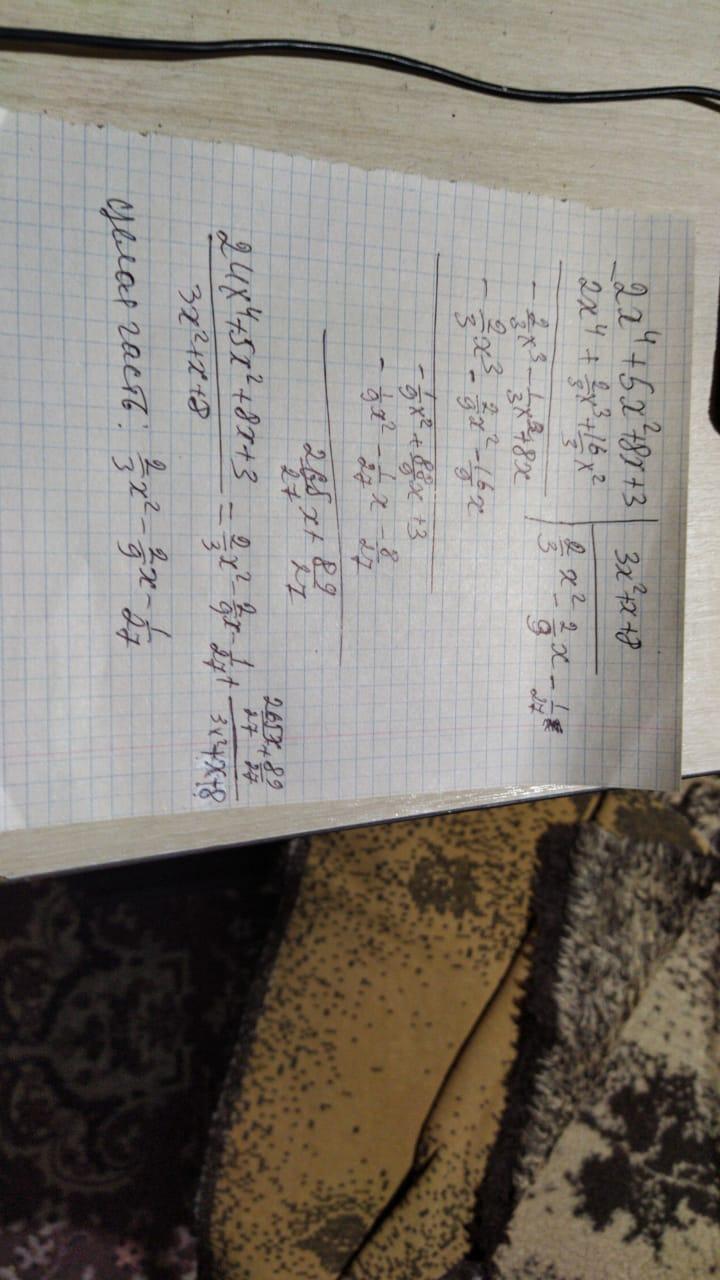 _2x⁴+5x²+8x+3 | 3x²+x+8
2x⁴ + 2/3x³+16/3x² | 2/3x² - 2/9x - 1/27
- 2/3x³ - 1/3x²+8x
- 2/3x³ - 2/9x² - 16/9x
- 1/9x² + 88/9x +3
- 1/9x² - 1/27x - 8/27
265/27x + 89/27
(24x⁴+5x²+8x+3)/(3x²+x+8) = 2/3x² - 2/9x - 1/27 + (265x/27 + 89/27)/(3x²+x+8)
Целая часть: 2/3x² - 2/9x - 1/27